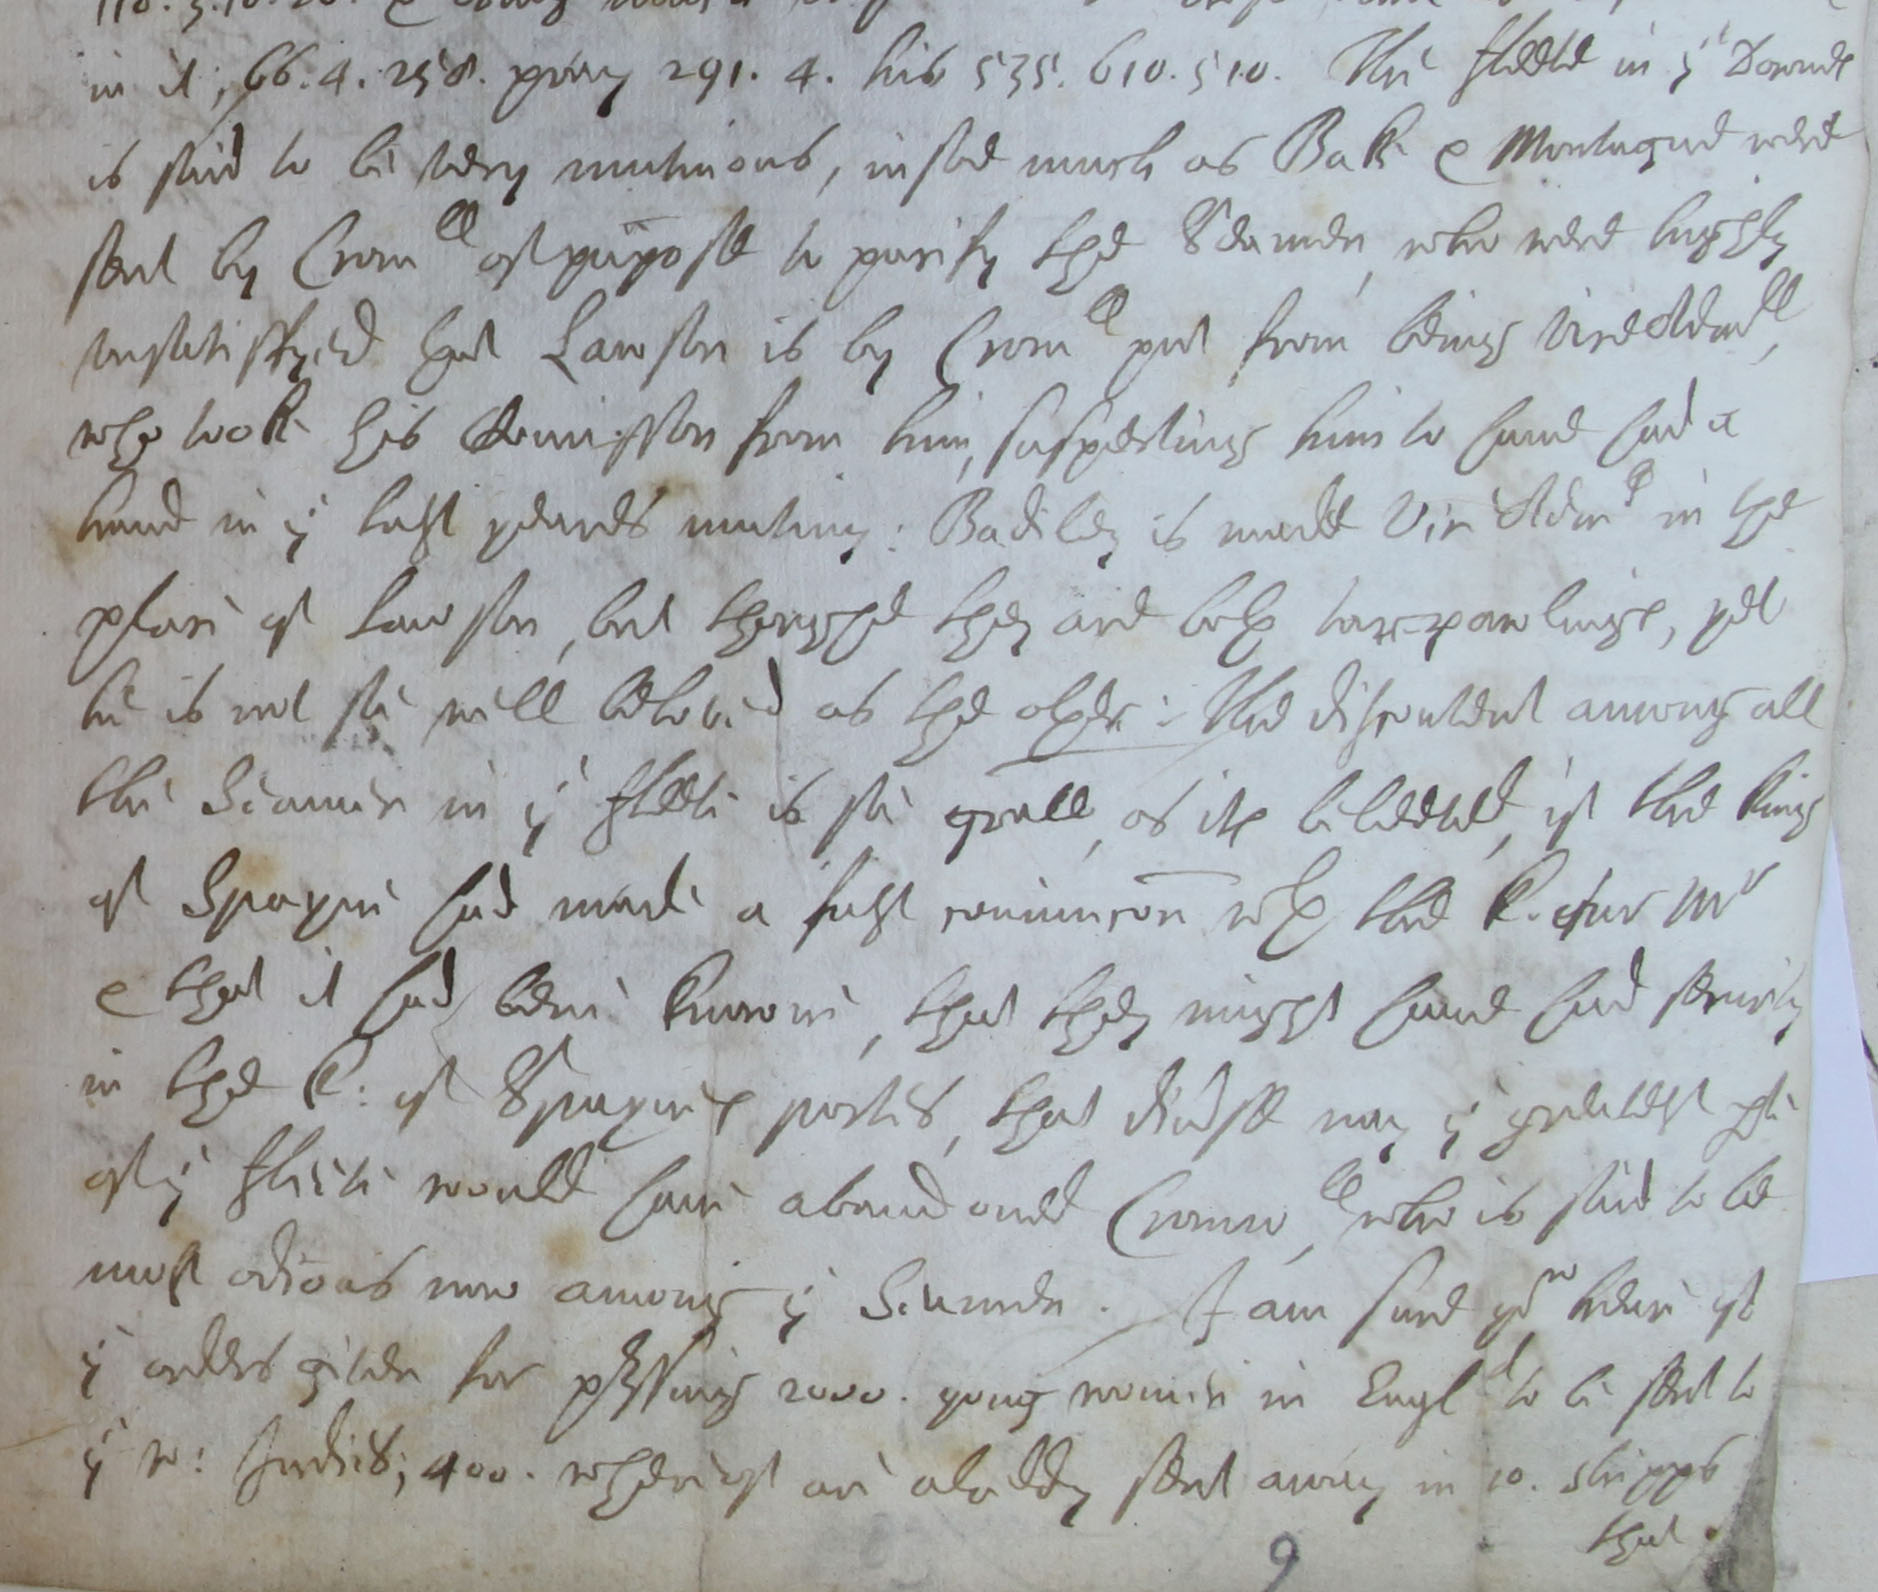 in it, 66. 4. 258. pray 291. 4. his 535. 610. 510. The fleete in yͤ Downes
is said to be very mutinous, in soe much as Bak & Montague were
sent by Cromˡˡ of purpose to pacify the Seamen, who were highly
unsatisfyed that Lawson is by Cromˡˡ put from being ViceAdmˡˡ,
who took his Comission from him, suspecting him to have had a
hand in yͤ last yeares mutiny: Badiley is made Vic Admˡˡ in the
place of Lawson, but thoughe they are both tarr-pawlings, yet
he is not soe well beloved as the other: The discontent among all
the Seamen in yͤ fleete is soe greate, as its beleeved, if the King
of Spayne had made a fast coniuncon wth the K. our Mʳ
& that it had bene knowne, that they might have had security
in the K: of Spaynes portes, that diverse nay yͤ greatest pte
of yͤ fleete would have abandoned Cromwˡˡ, who is said to be
most odious now among yͤ Seamen. I am sure yoᵘ heare of
yͤ orders given for pressing 2000. yong women in Englᵈ to be sent to
yͤ w: Indies; 400. whereof are already sent away in 10. shipps
that
9